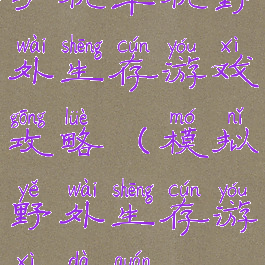 wài shēng cún yóu xì
外生存游戏
gōng lüè mó nǐ
攻略（模拟
yě wài shēng cún yóu
野外生存游